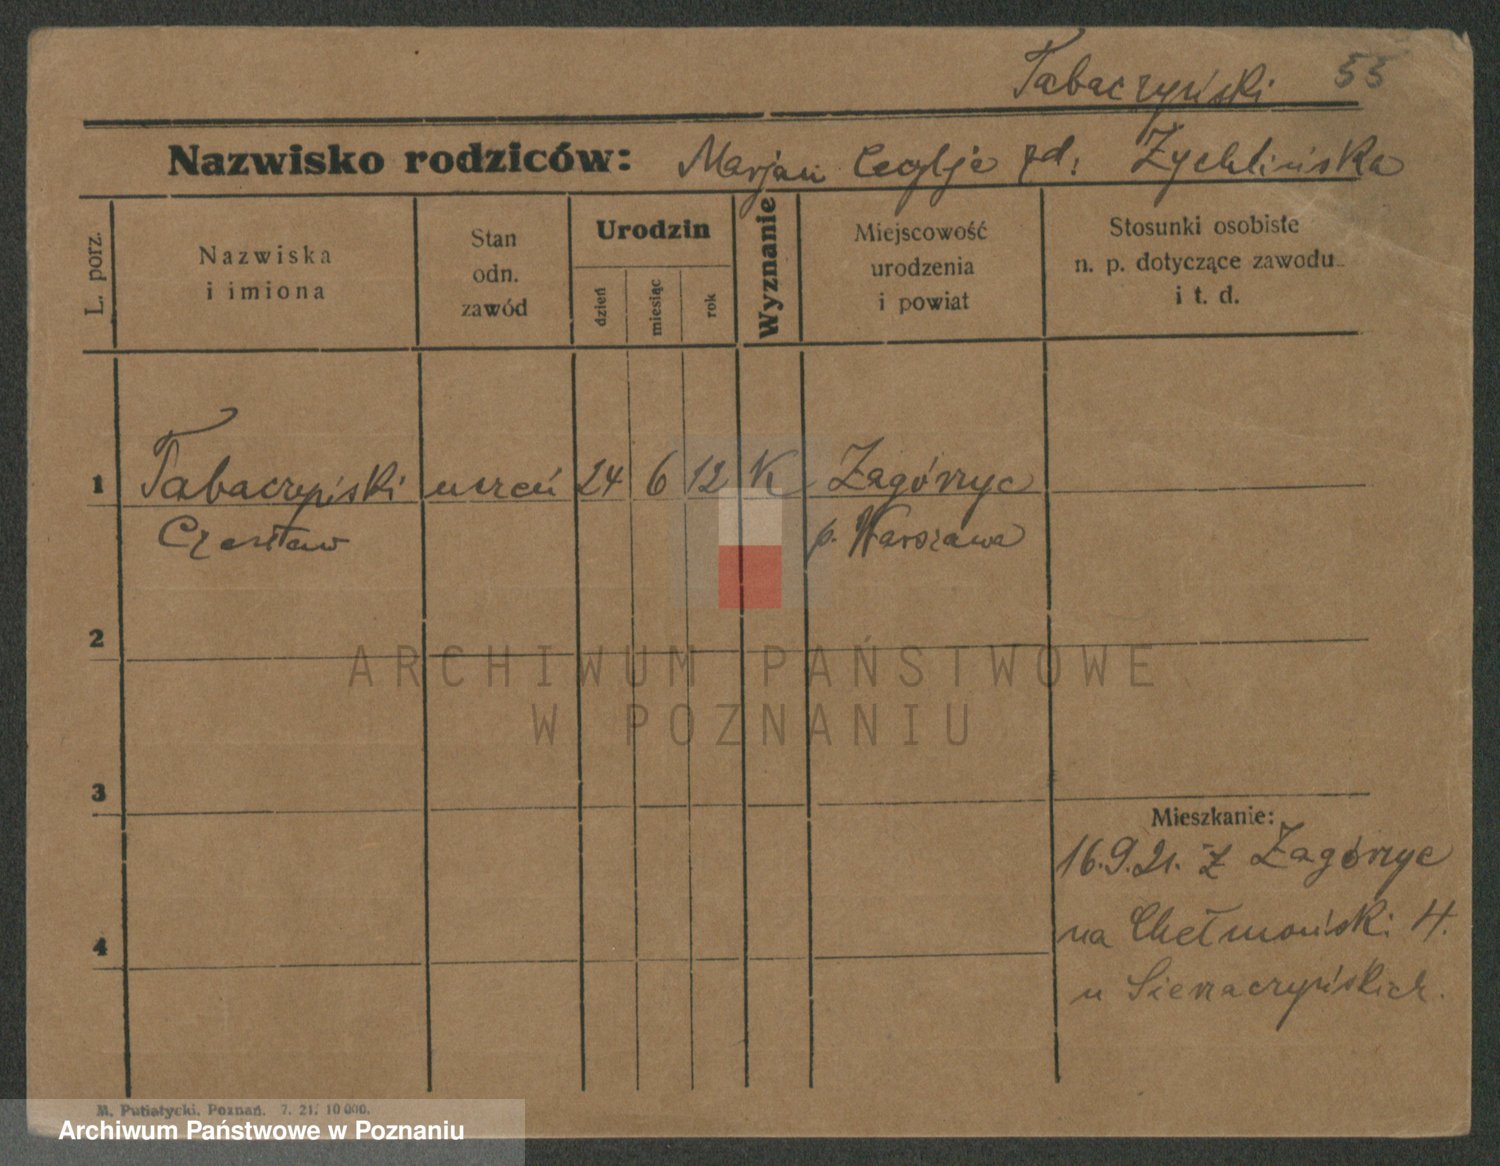 Tabaczyński 55
Nazwisko rodziców: Marjan Cecylja zd: Żychlińska
L. porz.
Nazwiska
i imiona
Stan
odn.
zawód
Urodzin
dzień
miesiąc
rok
Wyznanie
Miejscowość
urodzenia
i powiat
Stosunki osobiste
n. p. dotyczące zawodu
i t. d.
1 Tabaczyński uczeń 24 6 12 K Zagórzyc
Czesław p. Warszawa
2
ARCHIWUM PAŃSTWOWE
W POZNANIU
3
Mieszkanie:
16.9.21. z Zagórzyc
4 na Chełmoński: 4.
u
M. Putiatycki, Poznań. 7. 21. 10 000.
Archiwum Państwowe w Poznaniu